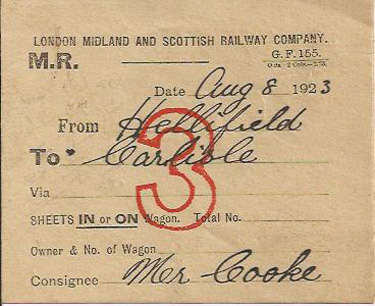 LONDON MIDLAND AND SCOTTISH RAILWAY COMPANY.
M.R. G.F. 155.
Date Aug 8 1923
From Hellifield
To Carlisle
3
Via
SHEETS IN or ON Wagon. Total No.
Owner & No. of Wagon
Consignee Mr Cooke